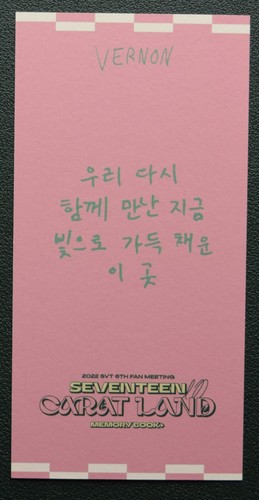 VERNON
우리 다시
함께 만난 지금
빛으로 가득 채운
이 곳
2022 SVT 6TH FAN MEETING
SEVENTEEN
CARAT LAND
MEMORY BOOK+